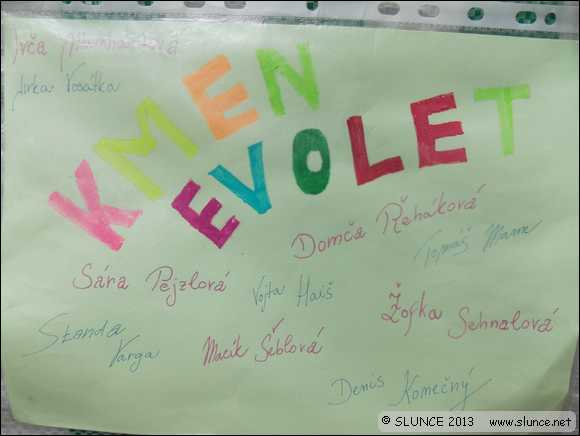 Jirka Vosátka
KMEN
EVOLET
Domča Řeháková
Tomáš
Sára Pejzlová
Vojta Haiš
Žofka Sehnalová
Standa
Varga
Macík Šéblová
Denis Komečný
© SLUNCE 2013 www.slunce.net